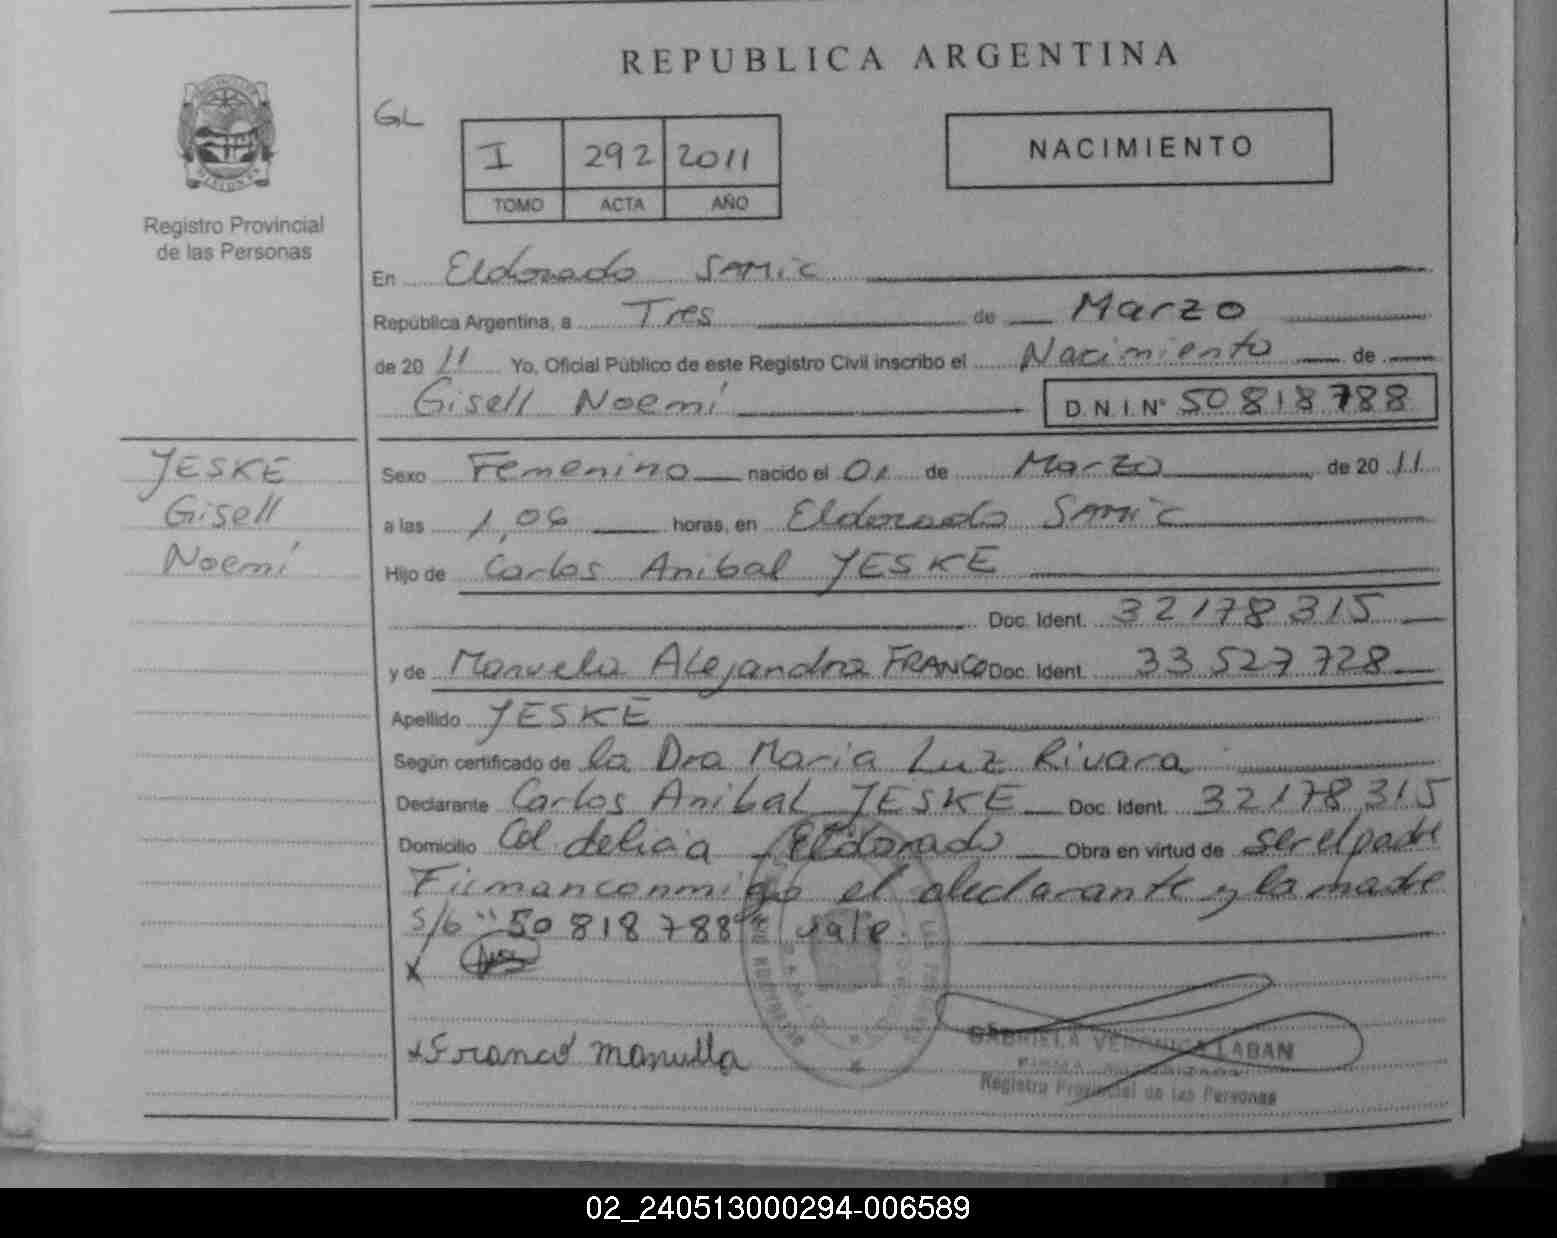 REPUBLICA ARGENTINA
GL
I 292 2011
TOMO ACTA AÑO
NACIMIENTO
MISIONES
Registro Provincial
de las Personas
En Eldorado SAMIC
República Argentina, a Tres de Marzo
de 20 11 Yo, Oficial Público de este Registro Civil inscribo el Nacimiento de
Gisell Noemí D.N.I.N° 50 818 788
JESKE
Gisell
Noemí
Sexo Femenino nacido el 01 de Marzo de 20 11
a las 1,06 horas, en Eldorado SAMIC
Hijo de Carlos Anibal JESKE
Doc. Ident. 32178315
y de Manuela Alejandra FRANCO Doc. Ident. 33 527 728
Apellido JESKE
Según certificado de la Dra Maria Luz Rivara
Declarante Carlos Anibal JESKE Doc. Ident. 32178315
Domicilio Col delicia Eldorado Obra en virtud de ser el padre
Firman conmigo el declarante y la madre
S/b "50 818 788" vale.
x
x Franco manuela
GABRIELA VERONICA LABAN
FIRMA AUTORIZADA
Registro Provincial de las Personas
02_240513000294-006589